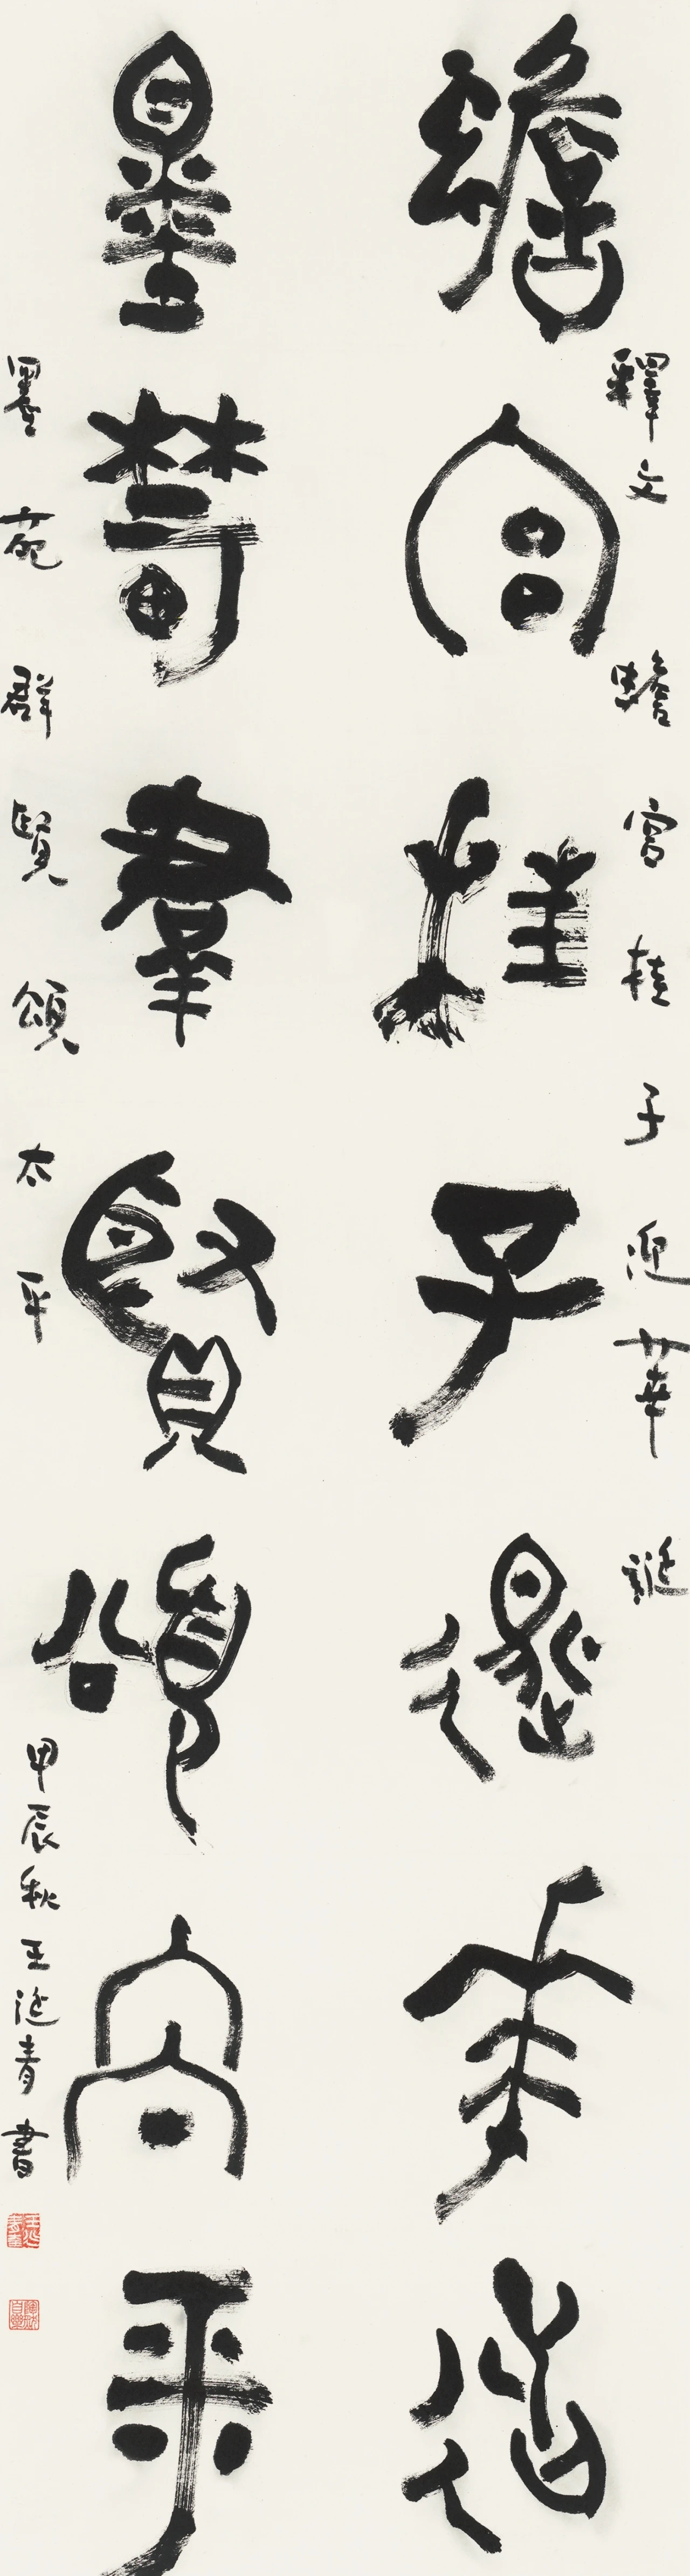 蟾宮桂子迎華誕
墨苑群賢頌太平
釋文 蟾宮桂子迎華誕
墨苑群賢頌太平
甲辰秋王延青書